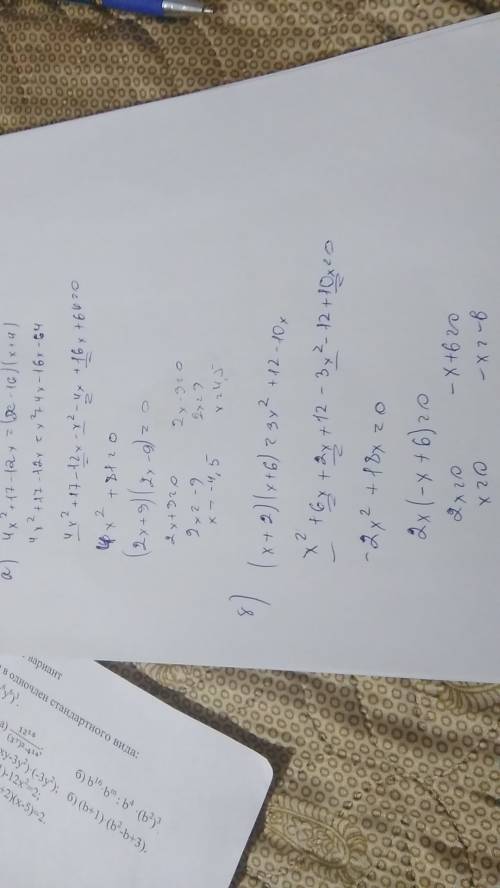 а) 4x²+17-12x=(x-16)(x+4)
4x²+17-12x=x²+4x-16x-64
4x²+17-12x-x²-4x+16x+64=0
x²+81=0
(2x+9)(2x-9)=0
2x+9=0 2x-9=0
2x=-9 2x=9
x=-4,5 x=4,5
8) (x+2)(x+6)=3x²+12-10x
x²+6x+2x+12-3x²-12+10x=0
-2x²+18x=0
2x(-x+6)=0
2x=0 -x+6=0
x=0 -x=-6
вариант
в одночлен стандартного вида:
б) b¹⁶·bᵐ:b⁴·(b²)³
xy-3y²)·(-3y²); б) (b+1)·(b²-b+3).
)-12x²=2;
+2)(x-5)=2.